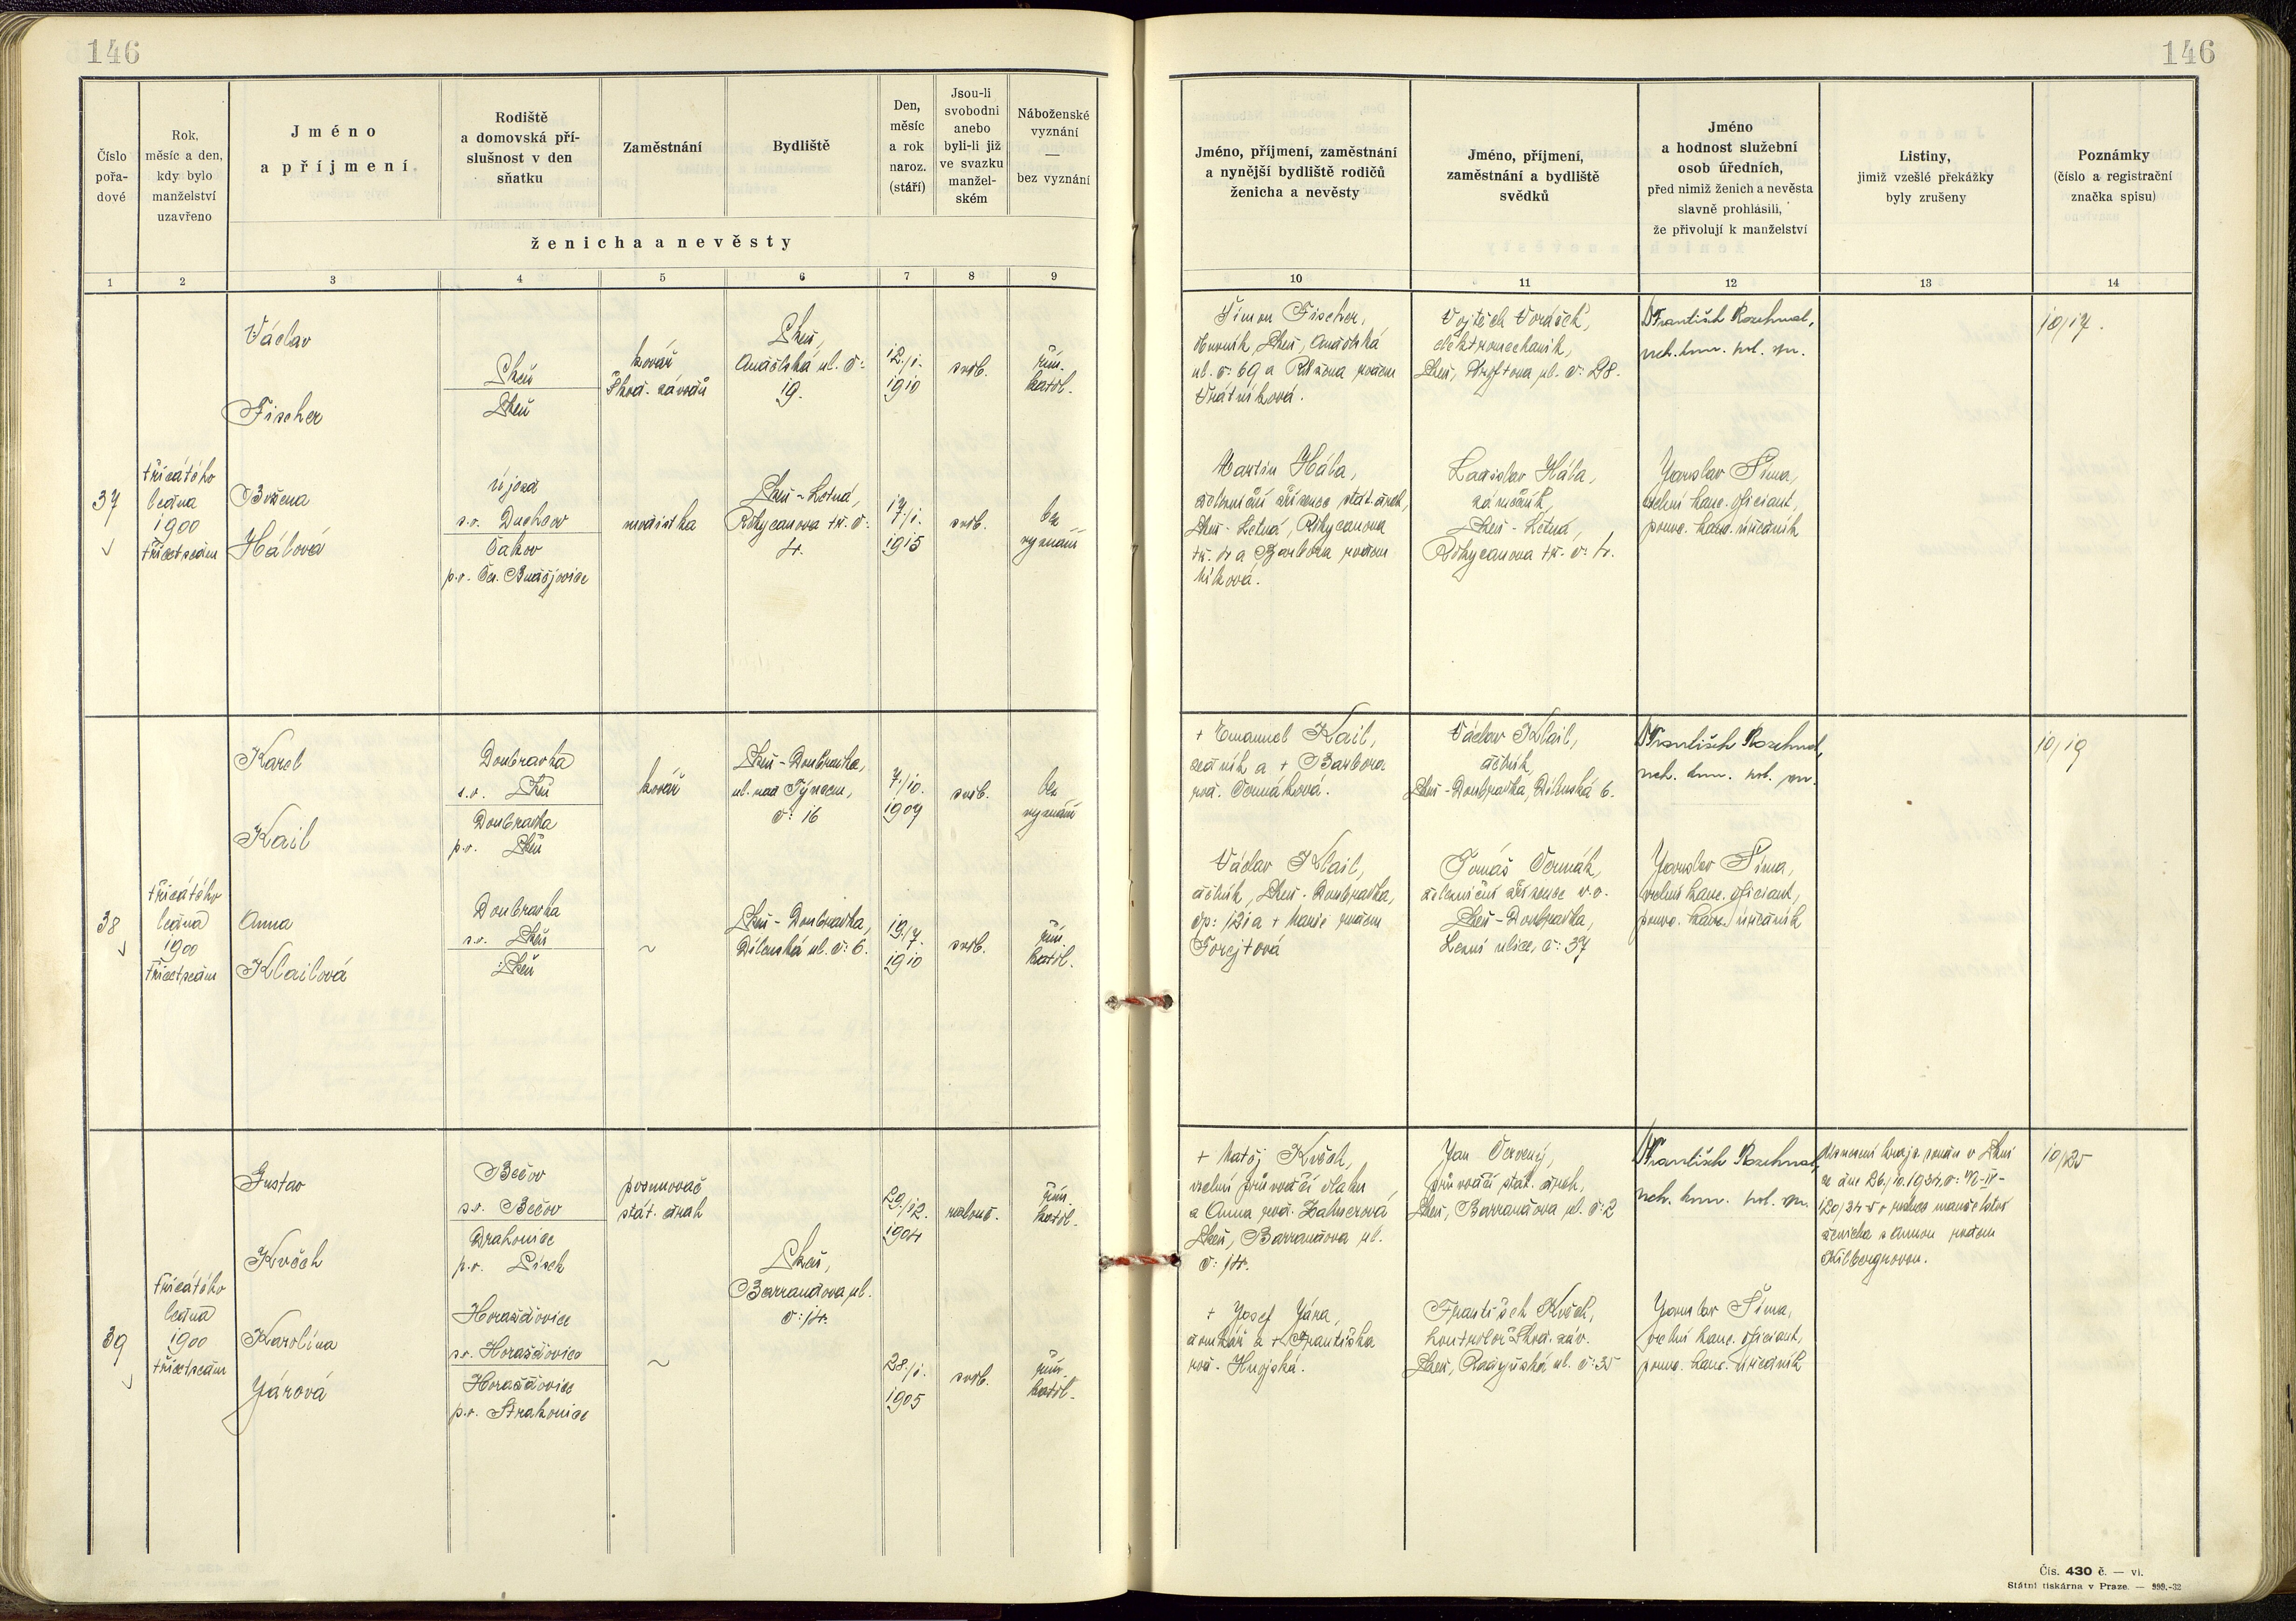 146
146
Číslo pořa-dové
Rok, měsíc a den, kdy bylo manželství uzavřeno
Jméno a příjmení
Rodiště a domovská pří-slušnost v den sňatku
Zaměstnání
Bydliště
Den, měsíc a rok naroz. (stáří)
Jsou-li svobodni anebo byli-li již ve svazku manžel-ském
Náboženské vyznání — bez vyznání
ženicha a nevěsty
Jméno, příjmení, zaměstnání
a nynější bydliště rodičů
ženicha a nevěsty
Jméno, příjmení,
zaměstnání a bydliště
svědků
Jméno
a hodnost služební
osob úředních,
před nimiž ženich a nevěsta
slavně prohlásili,
že přivolují k manželství
Listiny,
jimiž vzešlé překážky
byly zrušeny
Poznámky
(číslo a registrační
značka spisu)
1 2 3 4 5 6 7 8 9 10 11 12 13 14
37
třicátého
ledna
1900
třicetsedm
Václav
Fischer
Plzeň
Plzeň
kovář
Škod. závodů
Plzeň,
ul. č:
19.
12./1.
1910
svob.
řím.
katol.
Božena
Hálová
újezd
s.o. Duchcov
Čakov
p.o. Čes. Budějovice
modistka
Plzeň-Letná,
Rokycanova tř. č:
4.
17./1.
1915
svob.
bez
vyznání
Šimon Fischer,
Plzeň,
ul. č: 69 a Růžena rodem
Vrátníková.
Vojtěch Voráček,
elektromechanik,
Plzeň, ul. č: 28.
František Rozehnal,
10/17.
Martin Hála,
železniční zřízenec stát. drah,
Plzeň-Letná, Rokycanova
tř. 4 a Barbora rodem
Ladislav Hála,
zámečník,
Plzeň-Letná,
Rokycanova tř. č: 4.
Jaroslav Šíma,
velení kanc. oficiant,
pověř. kanc. úředník
38
třicátého
ledna
1900
třicetsedm
Karel
Kail
Doubravka
s.o. Plzeň
Doubravka
p.o. Plzeň
kovář
Plzeň-Doubravka,
ul. nad Týncem,
č: 16
7./10.
1909
svob.
bez
vyznání
Anna
Klailová
Doubravka
s.o. Plzeň
Plzeň
~
Plzeň-Doubravka,
Dílenská ul. č: 6.
19./7.
1910
svob.
řím.
katol.
+ Emanuel Kail,
zedník a + Barbora
roz. Čermáková.
Václav Klail,
dělník,
Plzeň-Doubravka, Dílenská 6.
František Rozehnal,
10/19
Václav Klail,
dělník, Plzeň-Doubravka,
čp: 121 a + Marie rodem
Forejtová
Tomáš Čermák,
železniční zřízenec v.v.
Plzeň-Doubravka,
Lesní ulice, č: 37
Jaroslav Šíma,
velení kanc. oficiant,
pověř. kanc. úředník
39
třicátého
ledna
1900
třicetsedm
Gustav
Kvěch
Bečov
s.o. Bečov
Drahonice
p.o. Písek
posunovač
stát. drah
Plzeň,
Barrandova ul.
č: 14.
29./12.
1904
rozlouč.
řím.
katol.
Karolina
Járová
Horažďovice
s.o. Horažďovice
Horažďovice
p.o. Strakonice
~
28./1.
1905
svob.
řím.
katol.
+ Matěj Kvěch,
vrchní průvodčí vlaku
a Anna roz. Zahnerová
Plzeň, Barrandova ul.
č: 14.
Jan Červený,
průvodčí stát. drah,
Plzeň, Barrandova ul. č: 2
František Rozehnal,
Usnesení kraj. soudu v Plzni
ze dne 26./10. 1934,
120/34-5 o rozluce manželství
ženicha s Annou rodem
10/25
+ Josef Jára,
domkář a + Františka
roz. Hnojská.
František Kvěch,
kontrolor Škod. záv.
Plzeň, Radyňská ul. č: 35
Jaroslav Šíma,
velení kanc. oficiant,
pověř. kanc. úředník
Čís. 430 č. — vi.
Státní tiskárna v Praze. — 999.-32